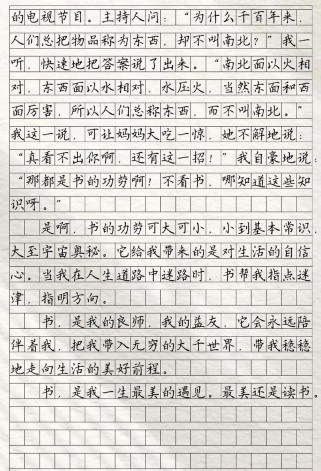 的电视节目。主持人问：“为什么千百年来，
人们总把物品称为东西，却不叫南北？”我一
听，快速地把答案说了出来。“南北面以火相
对，东西面以水相对，水压火，当然东面和西
面厉害，所以人们总称东西，而不叫南北。”
我这一说，可让妈妈大吃一惊，她不解地说：
“真看不出你啊，还有这一招！”我自豪地说：
“那都是书的功劳啊！不看书，哪知道这些知
识呀。”
是啊，书的功劳可大可小，小到基本常识，
大至宇宙奥秘。它给我带来的是对生活的自信
心。当我在人生道路中迷路时，书帮我指点迷
津，指明方向。
书，是我的良师，我的益友，它会永远陪
伴着我，把我带入无穷的大千世界，带我稳稳
地走向生活的美好前程。
书，是我一生最美的遇见。最美还是读书。